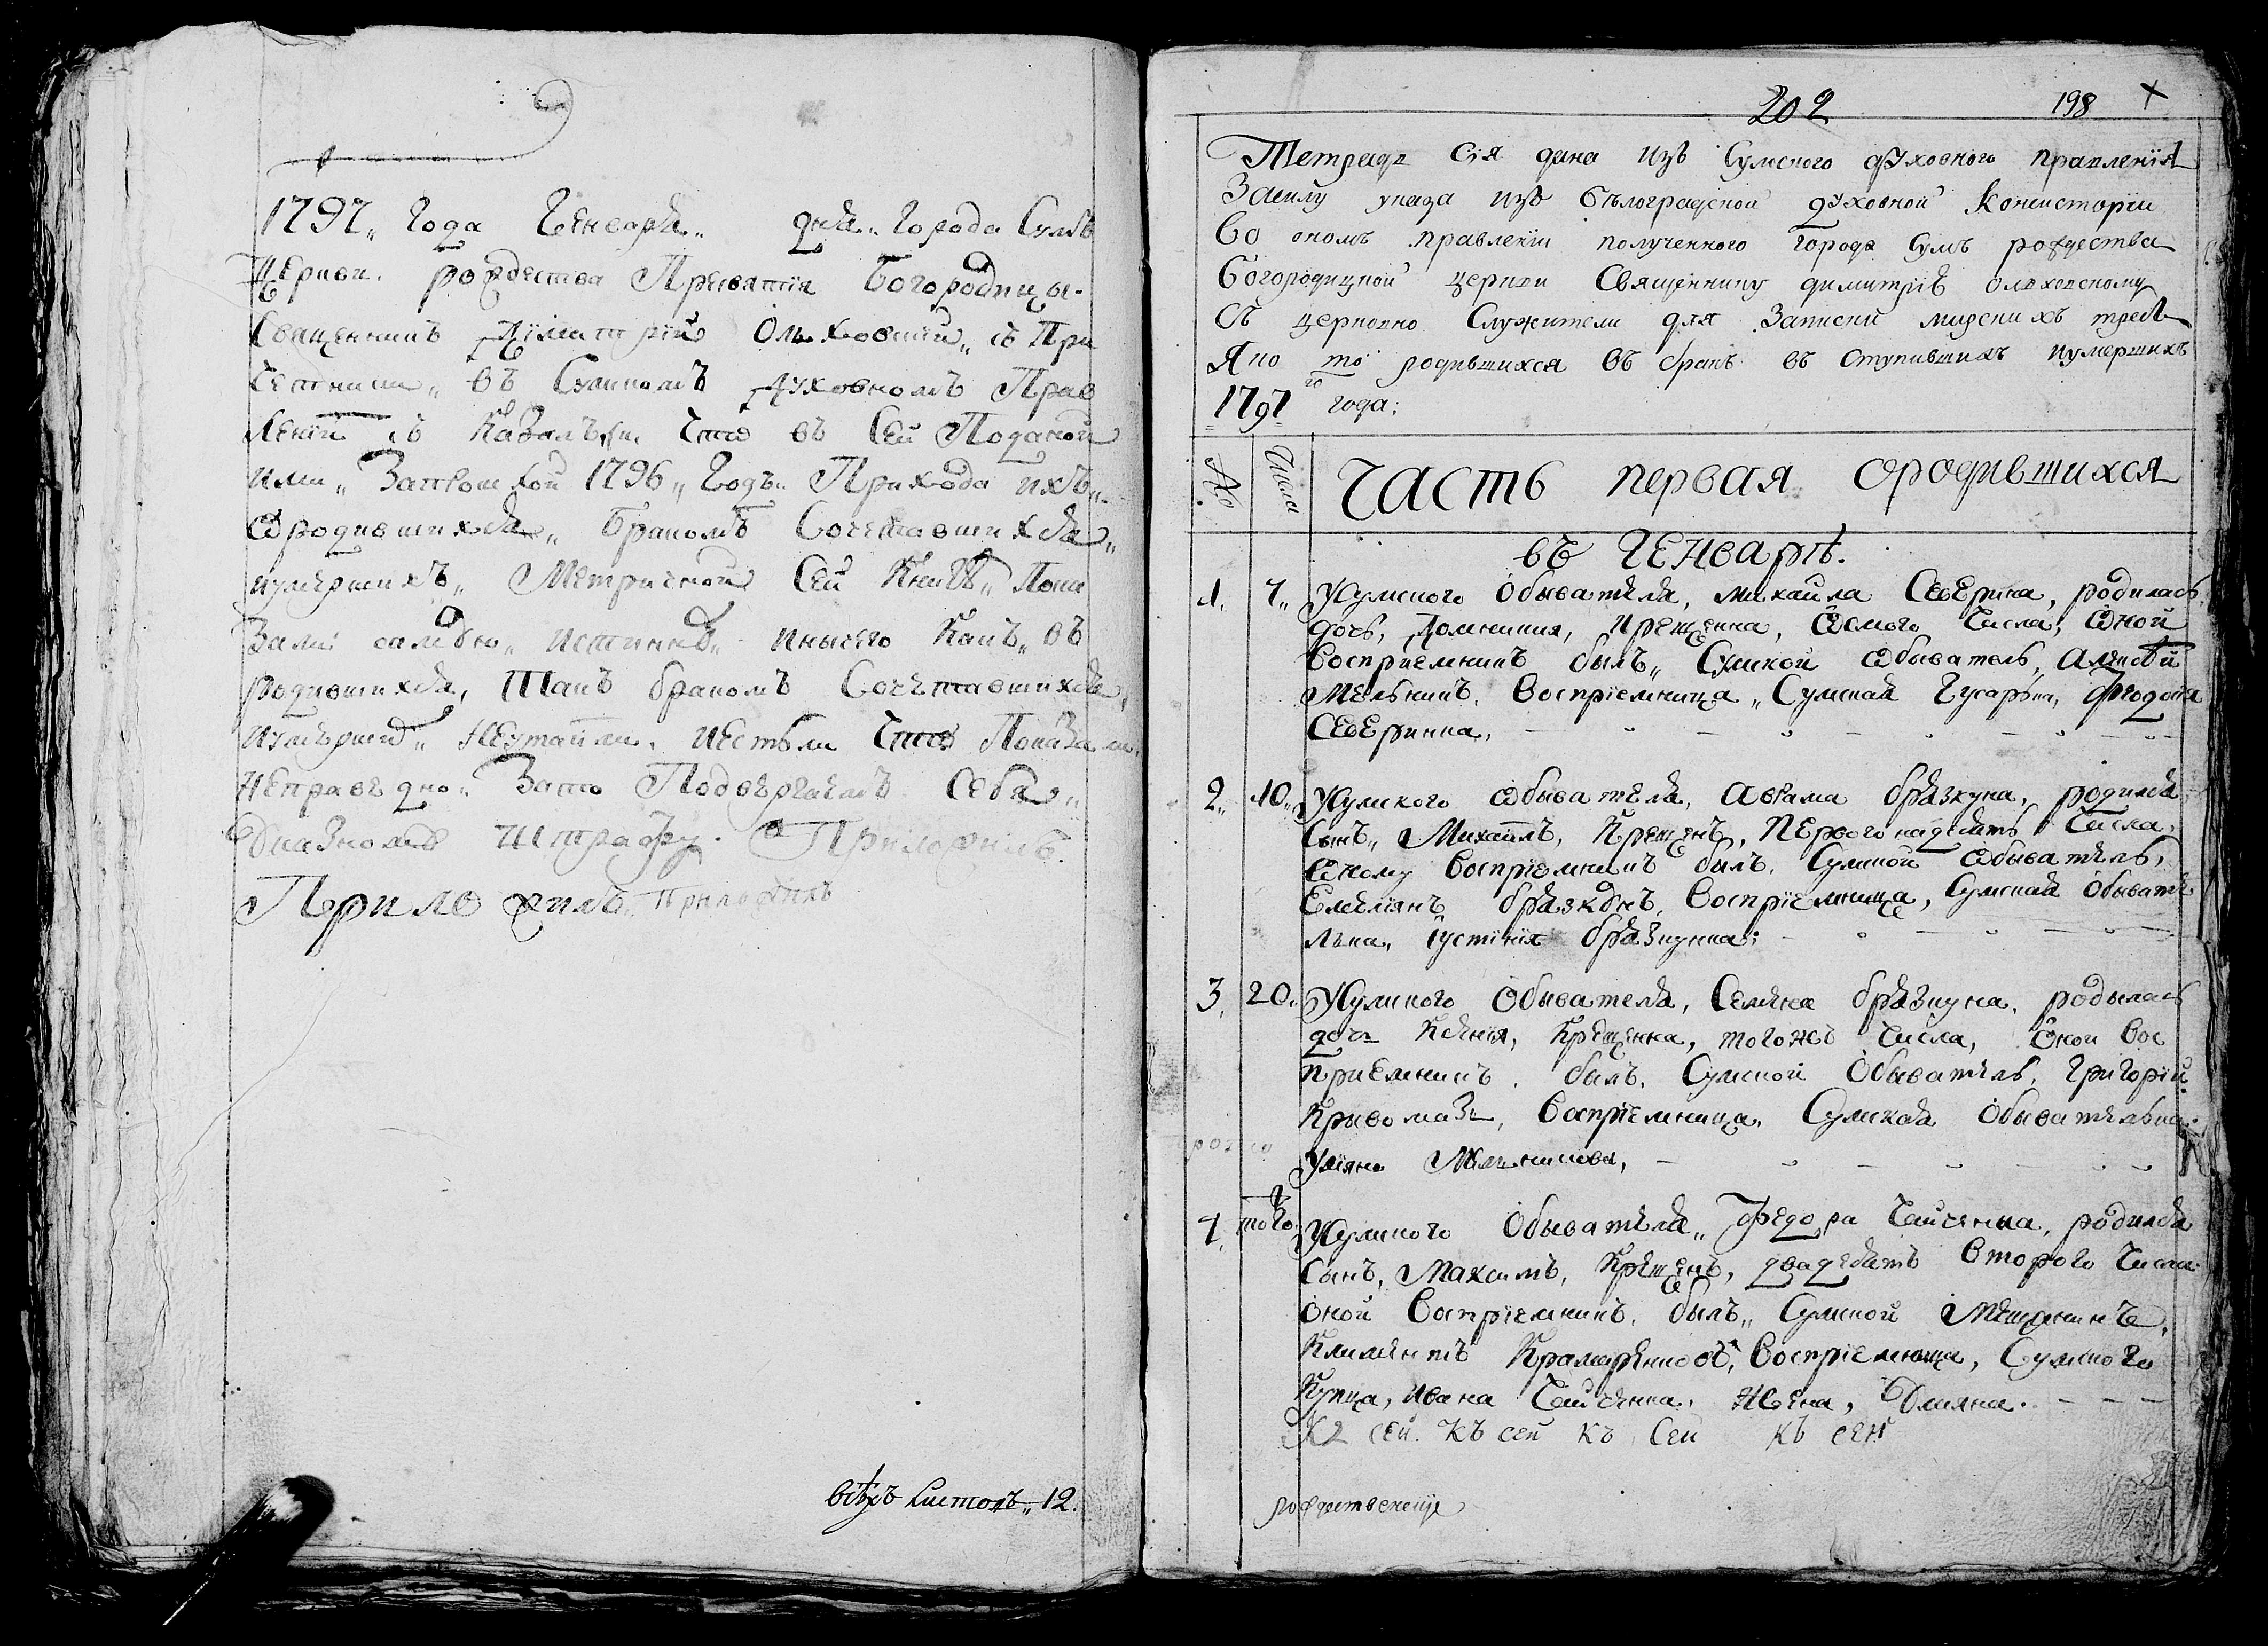 1797„ Года Генваря„ дня„ города Сумъ
Церкви. рождества Пресвятїя Богородицы.
Священникъ Дїмитрїй Ольховскїй„ съ При
четники„ въ Сумскомъ духовномъ Прав
ленїи съ Казалъ, Что въ Сей Поданой
ими„ Запрошлой 1796„ Годъ„ Прихода ихъ„
ѡродившихся„ бракомъ Сочетавшихся„
иумершихъ„ Метричной Сей Книгѣ„ Пока
Зали самую„ истинну„ иничего Какъ„ въ
родившихся, Такъ бракомъ Сочетавшихся,
Иумершихъ„ Неутаили, Иестьли Что Показали
Неправедно„ Зато Подвергаемъ Себя„
Указному Штрафу. Приложилъ.
Приложилъ. Приложилъ
всѣхъ листовъ„ 12.
202 198 X
Тетрадь сїя дана изъ Сумского духовного правленїя
Засилу указа изъ бѣлоградской духовной Консисторїи
Во ономъ правленїи полученного города Сумъ рождества
богородицкой церкви Священнику димитрїю ольховскому
Съ церковно Служители для Записки мирскихъ требъ
Яко то родившихся въ бракъ въ ступившихъ иумершихъ
1797 го года;
№ Числа ЧАСТЬ первая ородившихся
въ ГЕНварѣ.
1„ 7„ Усумского Обывателя, михаила Северина, родилась
дочь, Домникия, Крещенна, ѡсмого Числа, ѡной
Восприемникъ былъ„ Сумской ѡбыватель, Алексѣй
Мельникъ, Воспрїемница„ Сумская Гусарка, Феодосїя
Северинка,
2„ 10„ Усумского ѡбывателя, Аврама брязкуна, родился
Сынъ„ Михаилъ, Крещенъ, Первого надесять Числа,
Еному Воспрїемникъ былъ, Сумской ѡбыватель,
Емелїянъ брязкунъ, Воспрїемница, Сумская Обывате
лька„ іустинїя брязкунка;
3, 20„ Усумского Обывателя, Семена брязкуна, родылась
дочь Ксенїя, Крещенна, тогожъ Числа, Оной Вос
приемникъ, былъ, Сумской Обыватель, Григорїй
Кривомазъ, Воспрїемница, Сумская Обывателька
Улїяна Мельникова,
4, того Усумского Обывателя„ Федора Чайченка, родился
Сынъ, Максимъ, Крещенъ, двадесять Второго Числа
Оной Воспрїемникъ, былъ„ Сумской Мещанинъ,
Климентъ Крамаренковъ, Воспрїемница, Сумского
Купца, Ивана Чайченка, Жена,
Къ сей. Къ сей къ Сей къ сей
рождественску